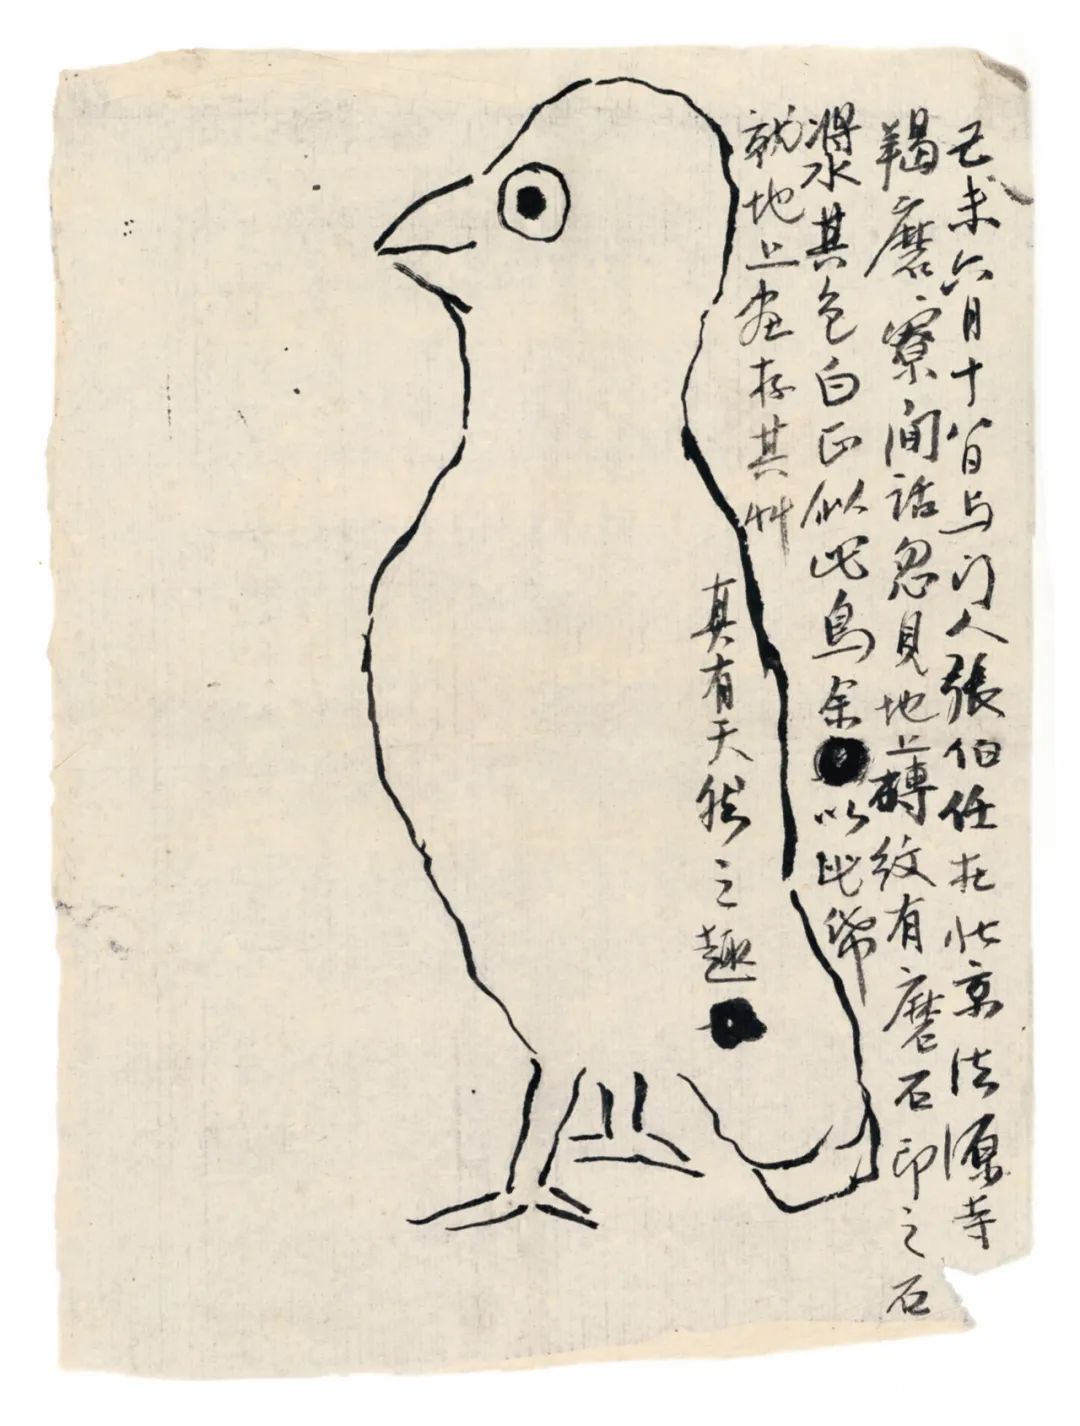 己未六月十八日与门人張伯任在北京法源寺
羯磨寮闲話忽見地上磚紋有磨石印之石
漿水其色白正似此鳥余以此紙
就地上画存其艸
真有天然之趣